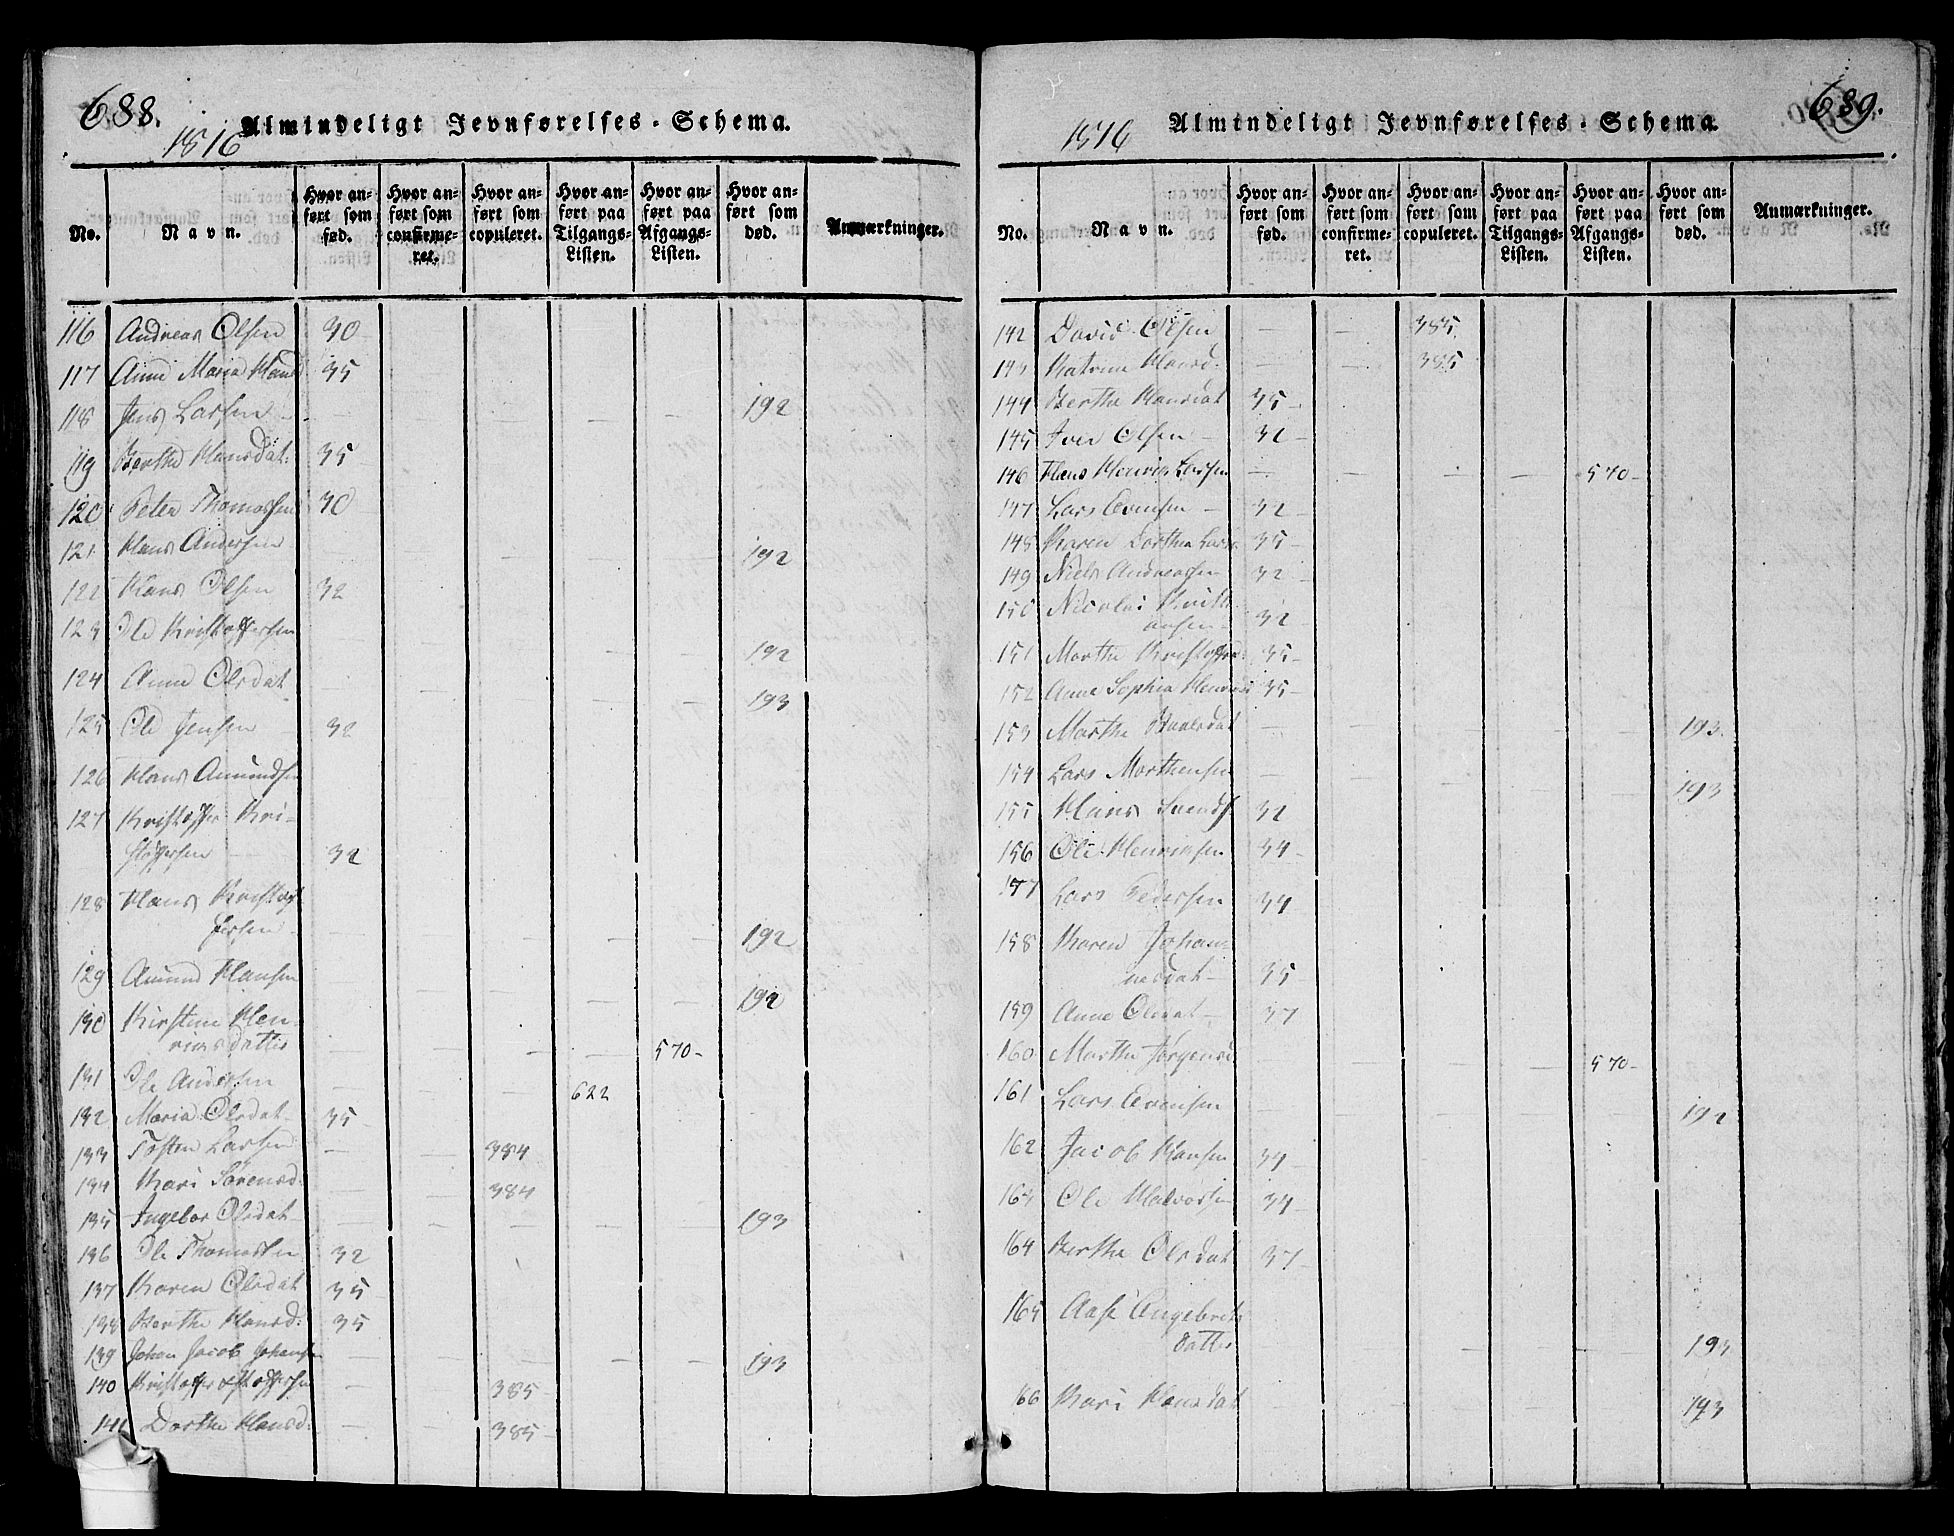 688.
1816 Almindeligt Jevnførelses-Schema.
No.
Navn.
Hvor anført som fød.
Hvor anført som confirmeret.
Hvor anført som copuleret.
Hvor anført paa Tilgangs-Listen.
Hvor anført paa Afgangs-Listen.
Hvor anført som død.
Anmærkninger.
116 Andreas Olsen 30
117 Anne Maria Hansd 35
118 Jens Larsen - - - - - 192
119 Berthe Hansdat: 35
120 Peter Thomassen 30
121 Hans Andersen - - - - - 192
122 Hans Olsen 32
123 Ole Kristoffersen - - - - - 192
124 Anne Olsdat - - - - - 193
125 Ole Jensen - 32
126 Hans Amundsen
127 Kristoffer Kri-
stoffersen - 32
128 Hans Kristof
fersen - - - - - 192
129 Amund Hansen - - - - - 192
130 Kirstine Hen-
richsdatter - - - - 570-
131 Ole Andersen - - - 622
132 Maria Olsdat 35-
133 Tosten Larsen - - 384
134 Kari Sørensd. - - 384
135 Ingebor Olsdat - - - - - 193
136 Ole Thomassen 32
137 Karen Olsdat 35
138 Berthe Hansd: 35
139 Johan Jacob Johansen - - - - - 193
140 Kristoffer Kristoffersen - - 385
141 Dorthe Hansd: - - 385-
689.
1816 Almindeligt Jevnførelses-Schema.
No.
Navn.
Hvor anført som fød.
Hvor anført som confirmeret.
Hvor anført som copuleret.
Hvor anført paa Tilgangs-Listen.
Hvor anført paa Afgangs-Listen.
Hvor anført som død.
Anmærkninger.
142 David Olsen - - 385.
143 Katrine Hansd. - - 385
144 Berthe Hansdat 35-
145 Iver Olsen - 32-
146 Hans Henrik Larsen - - - - 570-
147 Lars Evensen - 32-
148 Karen Dorthea Lars. 35-
149 Niels Andreassen 32-
150 Nicolai Kristi
ansen - 32-
151 Marthe Kristoffersd: 35-
152 Anne Sophia Henricsd 35-
153 Marthe Poulsdat - - - - - 193.
154 Lars Morthensen - - - - - 193
155 Hans Svends. 32
156 Ole Henriksen 34-
157 Lars Pedersen 34-
158 Karen Johan-
nesdat - 35
159 Anne Olsdat - 37
160 Marthe Jørgensd - - - - 570-
161 Lars Evensen - - - - - 192
162 Jacob Hansen 34-
163 Ole Halvorsen 34-
164 Berthe Olsdat 37-
165 Aase Engebrets
datter - - - - - 193
66 Kari Hansdat - - - - - 193